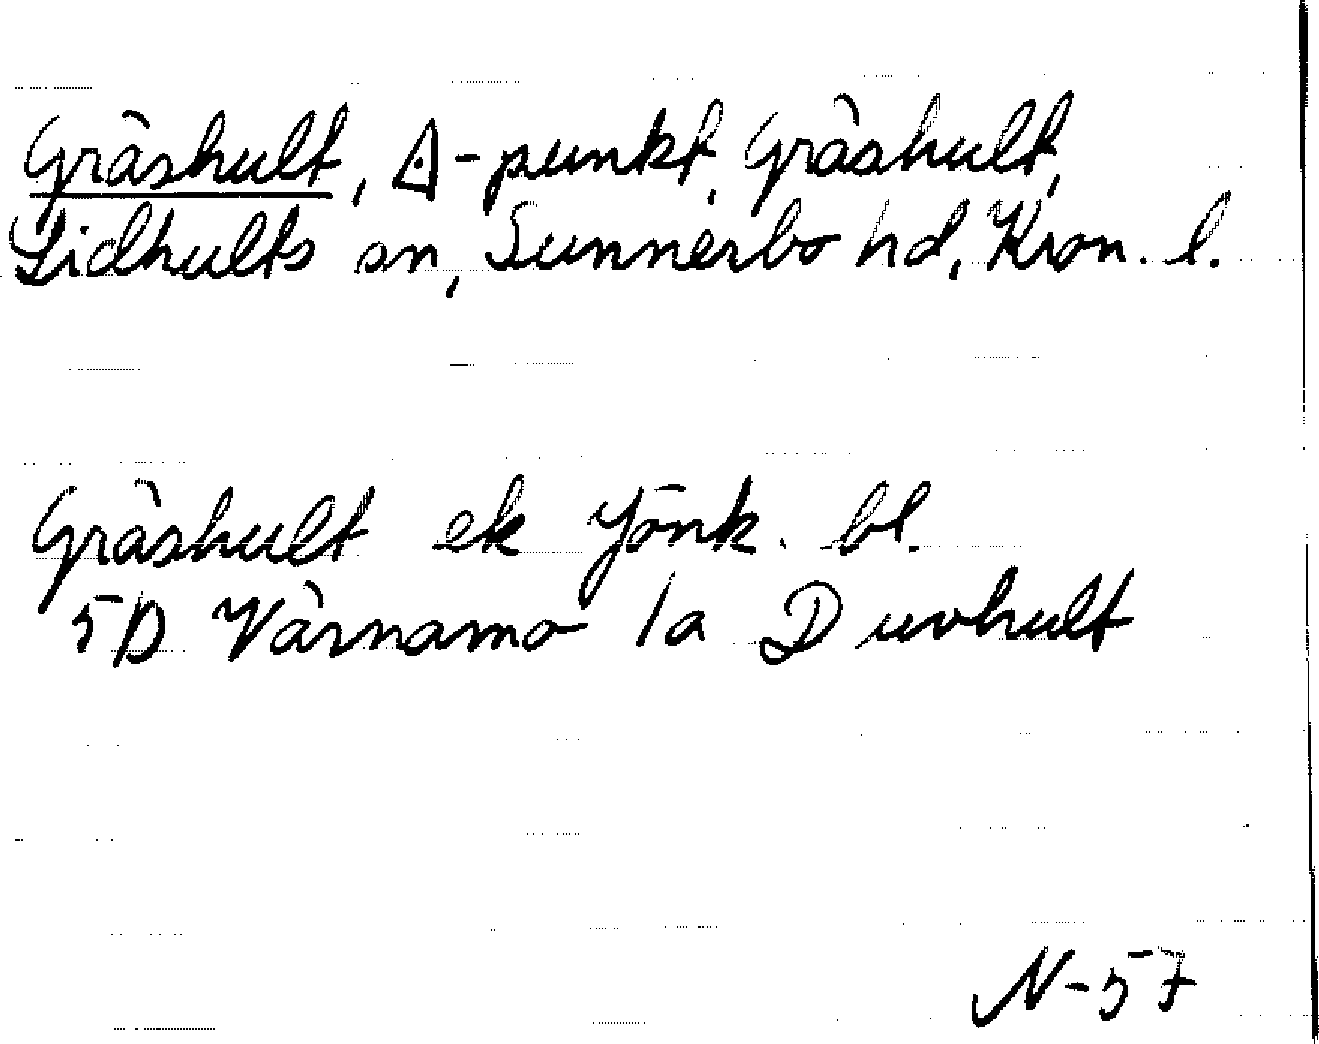 Gräshult, ∆-punkt, Gräshult,
Lidhults sn, Sunnerbo hd, Kron. l.
Gräshult ek Jönk. bl.
5D Värnamo 1a Duvhult
N-57